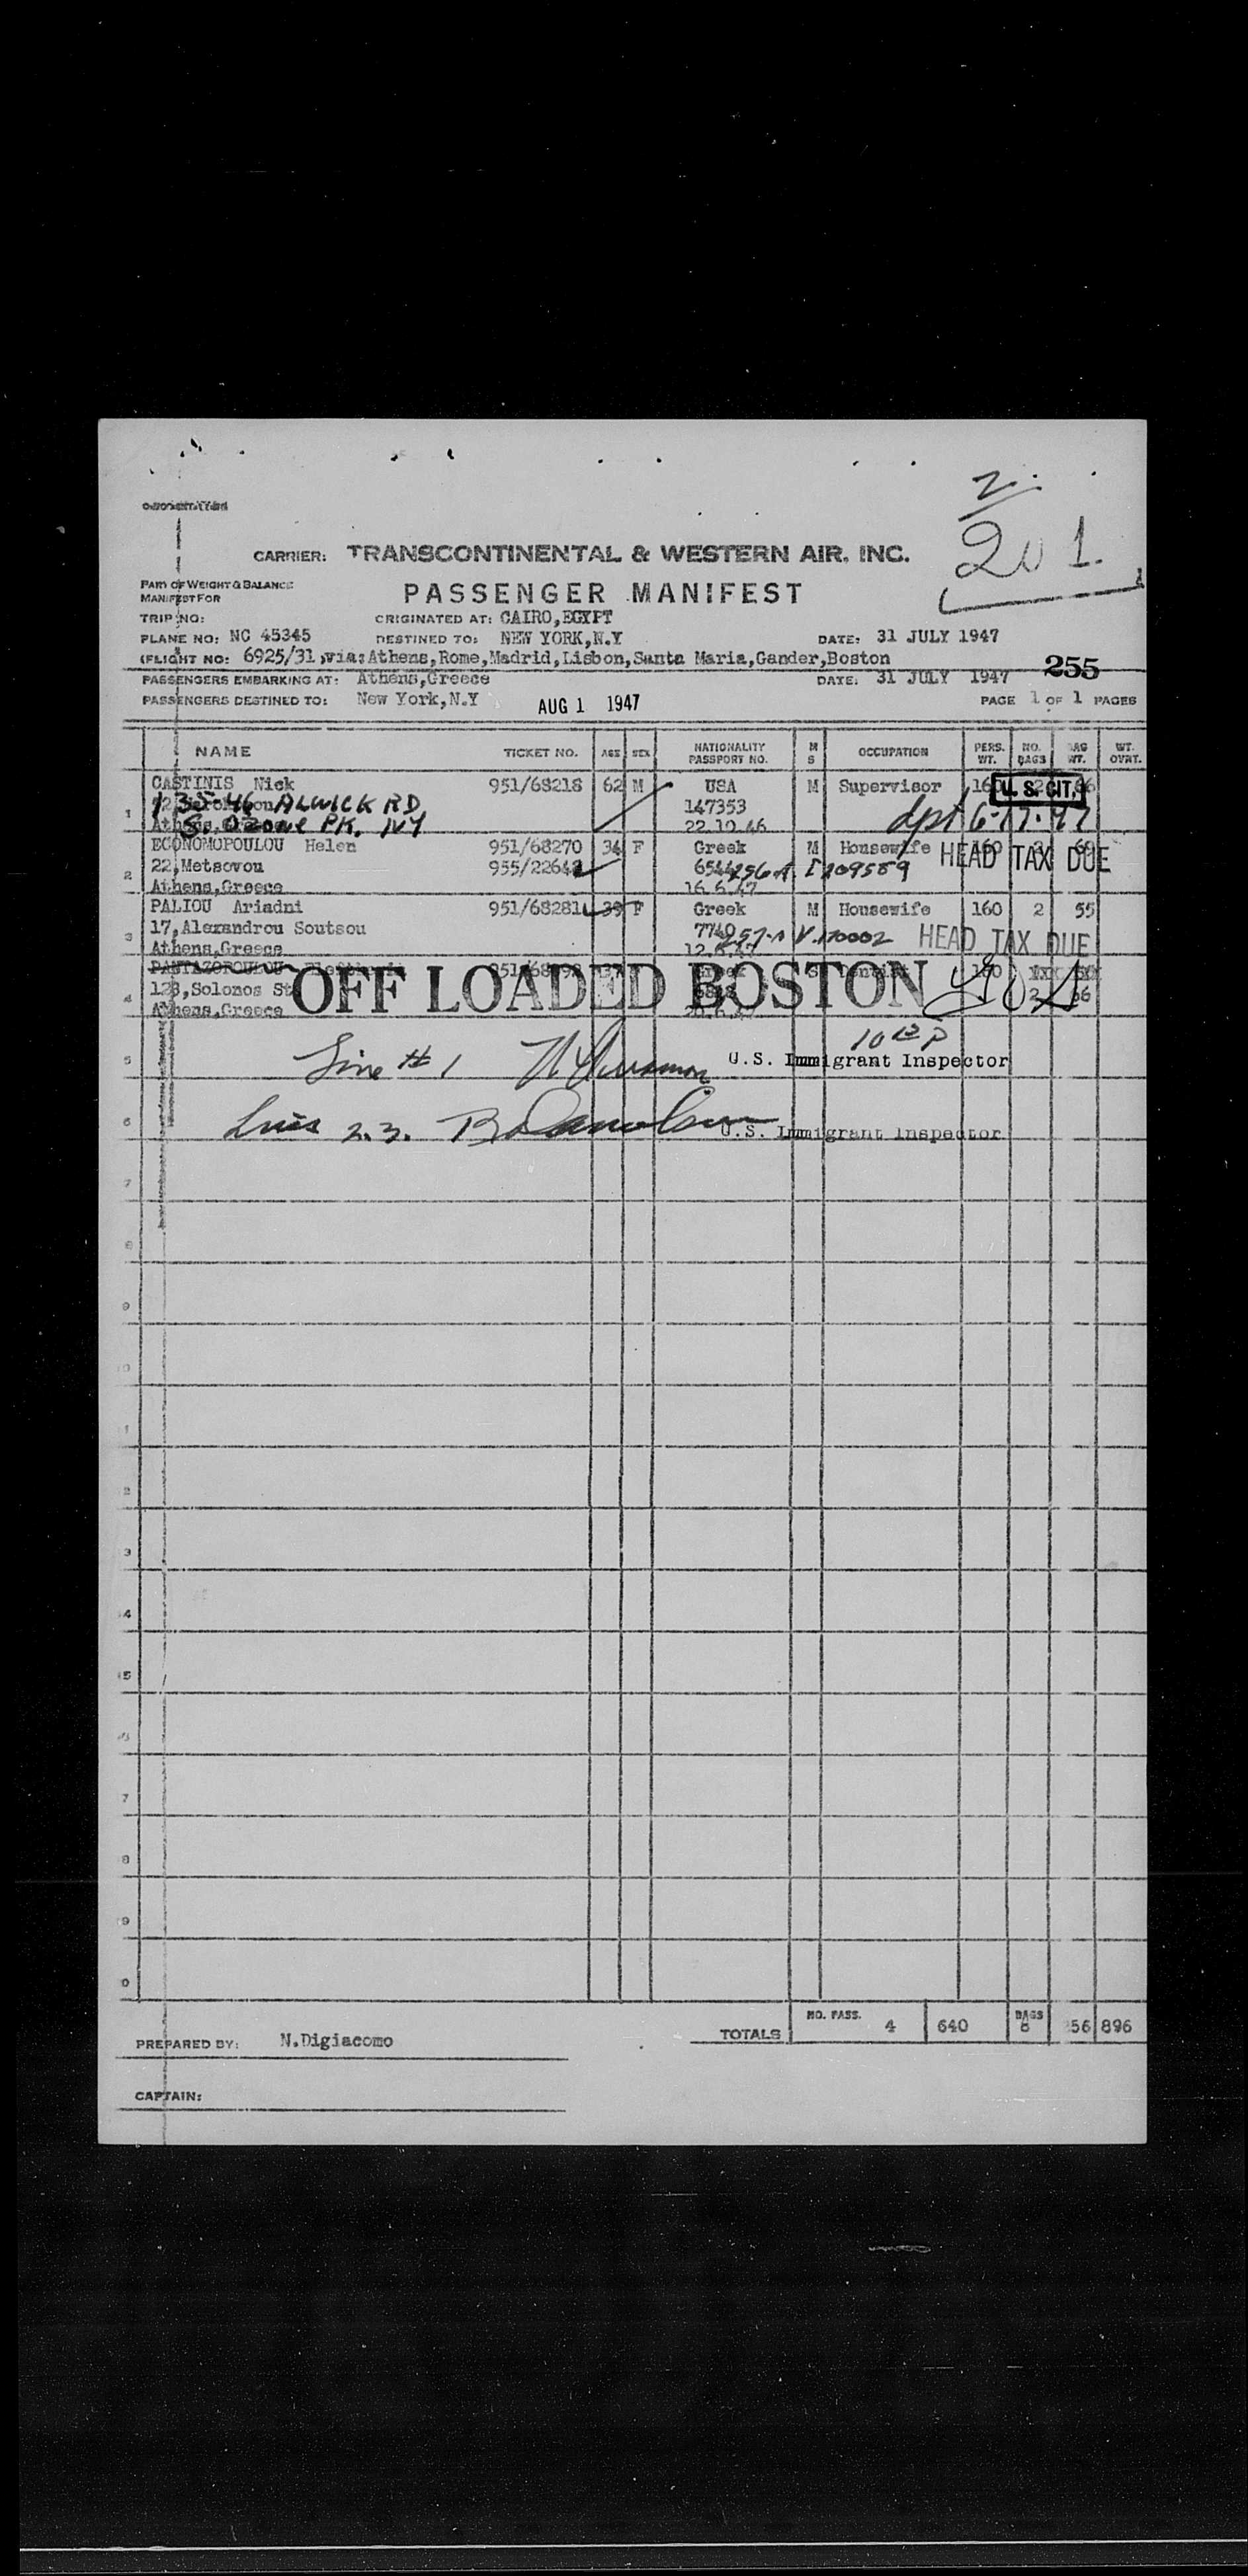 2
201
CARRIER: TRANSCONTINENTAL & WESTERN AIR. INC.
PART OF WEIGHT & BALANCE
MANIFEST FOR
PASSENGER MANIFEST
TRIP NO: ORIGINATED AT: CAIRO,EGYPT
PLANE NO: NC 45345 DESTINED TO: NEW YORK,N.Y DATE: 31 JULY 1947
(FLIGHT NO: 6925/31,via:Athens,Rome,Madrid,Lisbon,Santa Maria,Gander,Boston
255
PASSENGERS EMBARKING AT: Athens,Greece DATE: 31 JULY 1947
PASSENGERS DESTINED TO: New York,N.Y AUG 1 1947 PAGE 1 OF 1 PAGES
NAME TICKET NO. AGE SEX NATIONALITY PASSPORT NO. M S OCCUPATION PERS. WT. NO. BAGS BAG WT. WT. OVRT.
CASTINIS Nick 951/68218 62 M USA M Supervisor 160 U.S. CIT.
1 135-46 ALWICK RD 147353 dpt 6-17-47
Athens, S. Ozone PK. NY 22.10.46
ECONOMOPOULOU Helen 951/68270 34 F Greek M Housewife HEAD TAX DUE
2 22,Metsovou 955/22642 256-A I 209589
Athens,Greece 16.6.47
PALIOU Ariadni 951/68281 39 F Greek M Housewife 160 2 55
3 17,Alexandrou Soutsou 257-A V.170002 HEAD TAX DUE
Athens,Greece
PANTAZOPOULOU
4 128,Solonos St OFF LOADED BOSTON
Athens,Greece
5 Line # 1 U.S. Immigrant Inspector
6 Lines 2.3. U.S. Immigrant Inspector
7
8
9
10
1
2
3
4
15
7
8
9
0
TOTALS NO. PASS. 4 640 BAGS 8 56 896
PREPARED BY: N.Digiacomo
CAPTAIN: